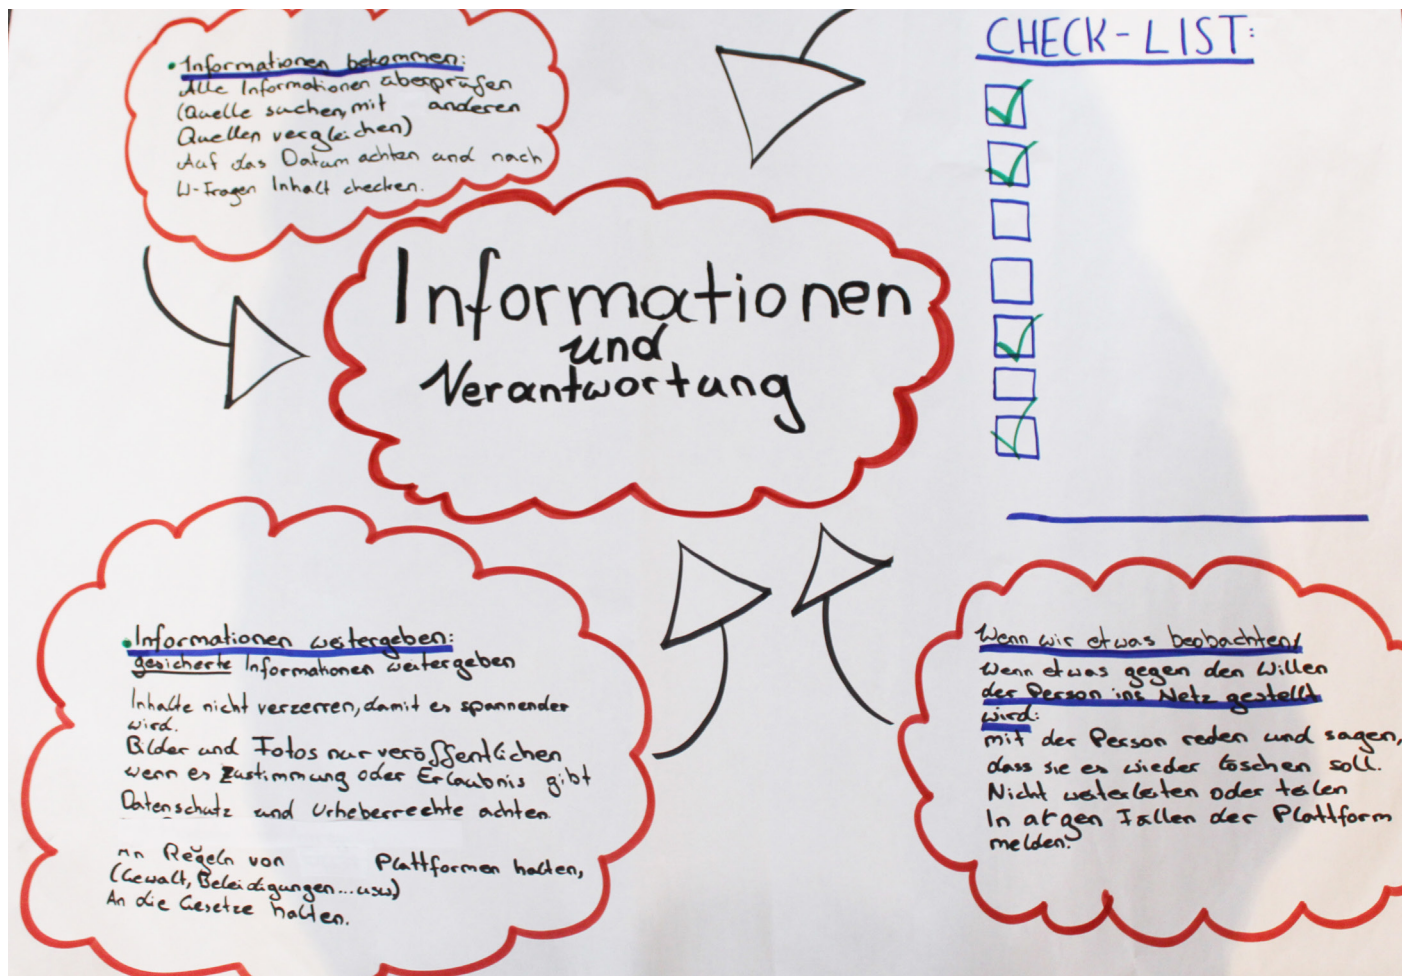 • Informationen bekommen:
Alle Informationen überprüfen
(Quelle suchen, mit anderen
Quellen vergleichen)
Auf das Datum achten und nach
W-Fragen Inhalt checken.
CHECK-LIST:
Informationen
und
Verantwortung
• Informationen weitergeben:
gesicherte Informationen weitergeben
Inhalte nicht verzerren, damit es spannender
wird.
Bilder und Fotos nur veröffentlichen
wenn es Zustimmung oder Erlaubnis gibt
Datenschutz und Urheberrechte achten.
An Regeln von Plattformen halten,
(Gewalt, Beleidigungen...usw)
An die Gesetze halten.
Wenn wir etwas beobachten/
wenn etwas gegen den Willen
der Person ins Netz gestellt
wird:
mit der Person reden und sagen,
dass sie es wieder löschen soll.
Nicht weiterleiten oder teilen
In argen Fällen der Plattform
melden.